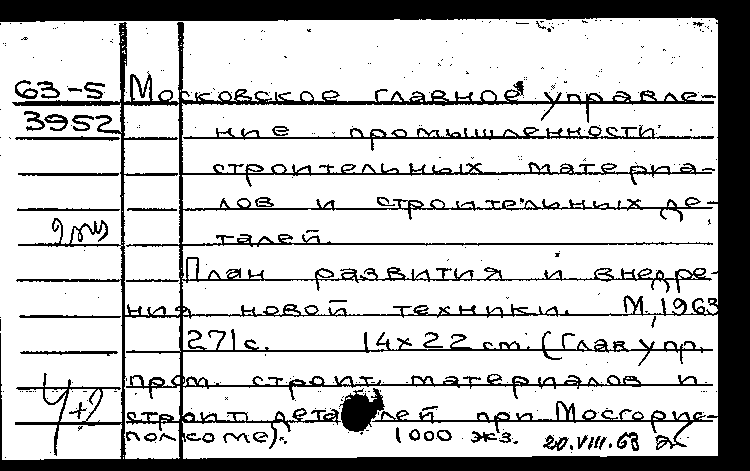 63-5 Московское главное управле-
3952 ние промышленности
строительных материа-
лов и строительных де-
талей.
План развития и внедре-
ния новой техники. М, 1963
271 с. 14х22 см. (Глав упр.
пром. строит. материалов и
строит. деталей при Мосгорис-
полкоме). 1000 экз. 20.VIII.63